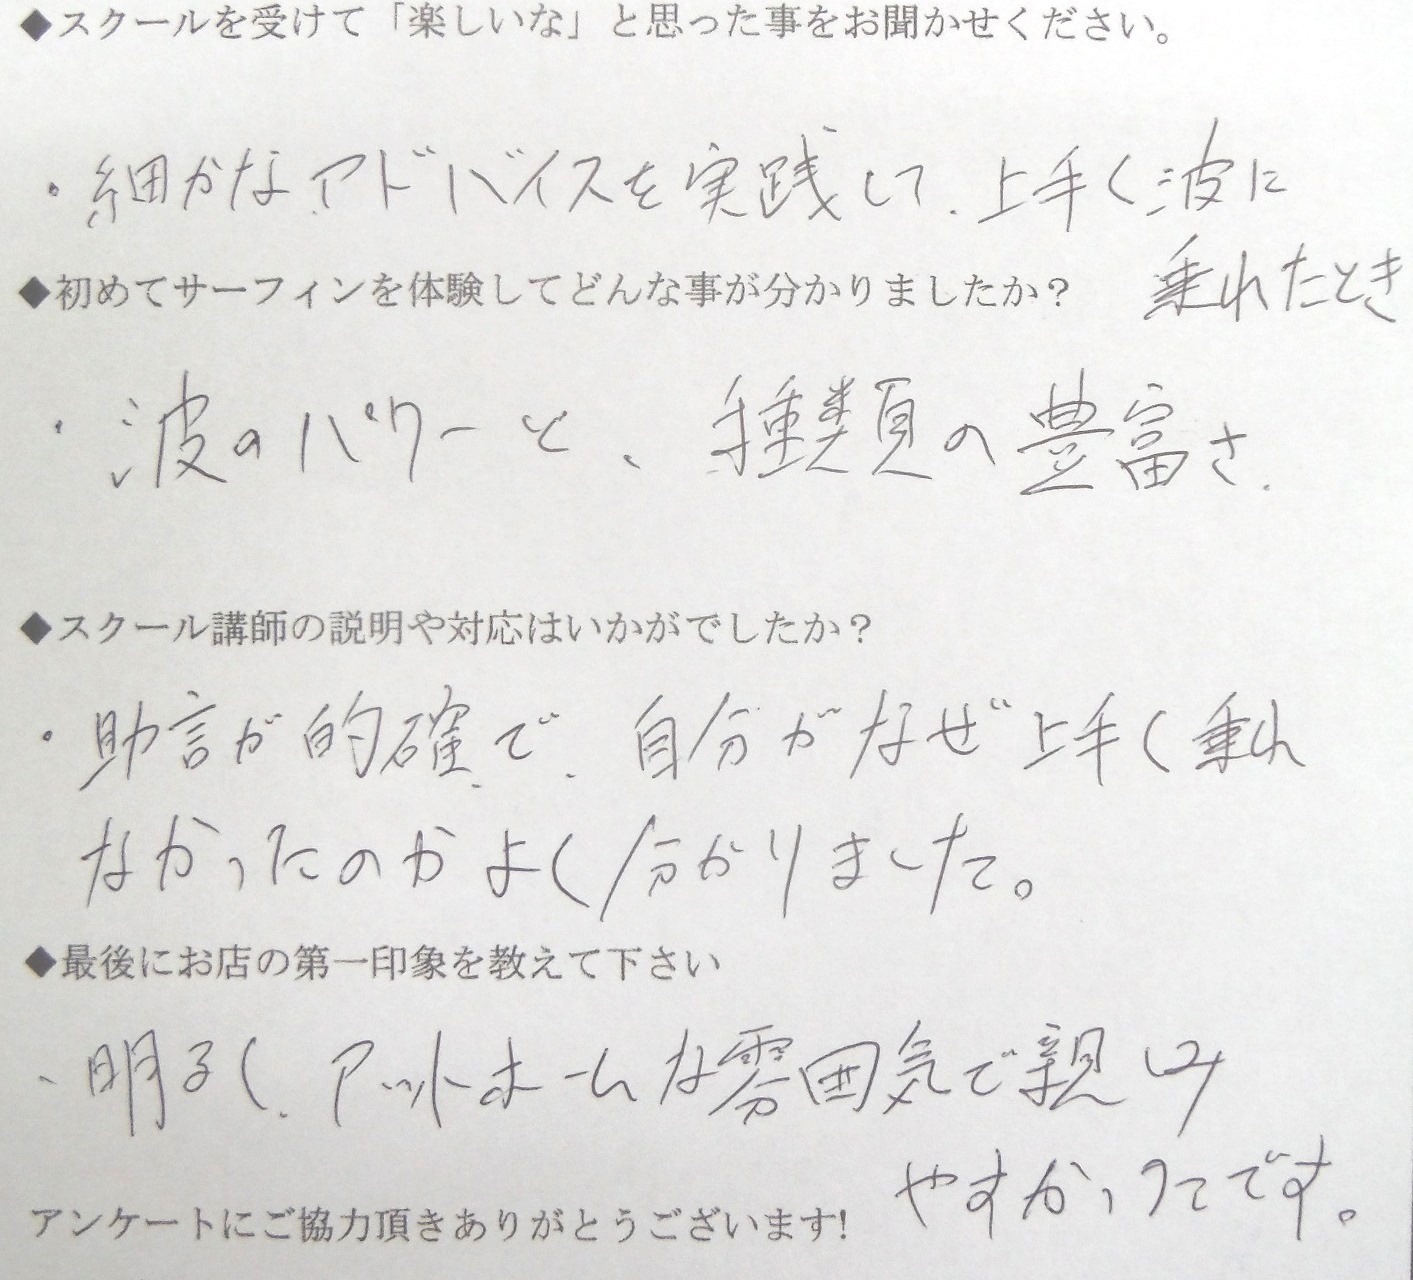 ◆スクールを受けて「楽しいな」と思った事をお聞かせください。
・細かなアドバイスを実践して、上手く波に
乗れたとき
◆初めてサーフィンを体験してどんな事が分かりましたか？
・波のパワーと、種類の豊富さ.
◆スクール講師の説明や対応はいかがでしたか？
・助言が的確で、自分がなぜ上手く乗れ
なかったのかよく分かりました。
◆最後にお店の第一印象を教えて下さい
、明るく、アットホームな雰囲気で親しみ
やすかったです。
アンケートにご協力頂きありがとうございます!